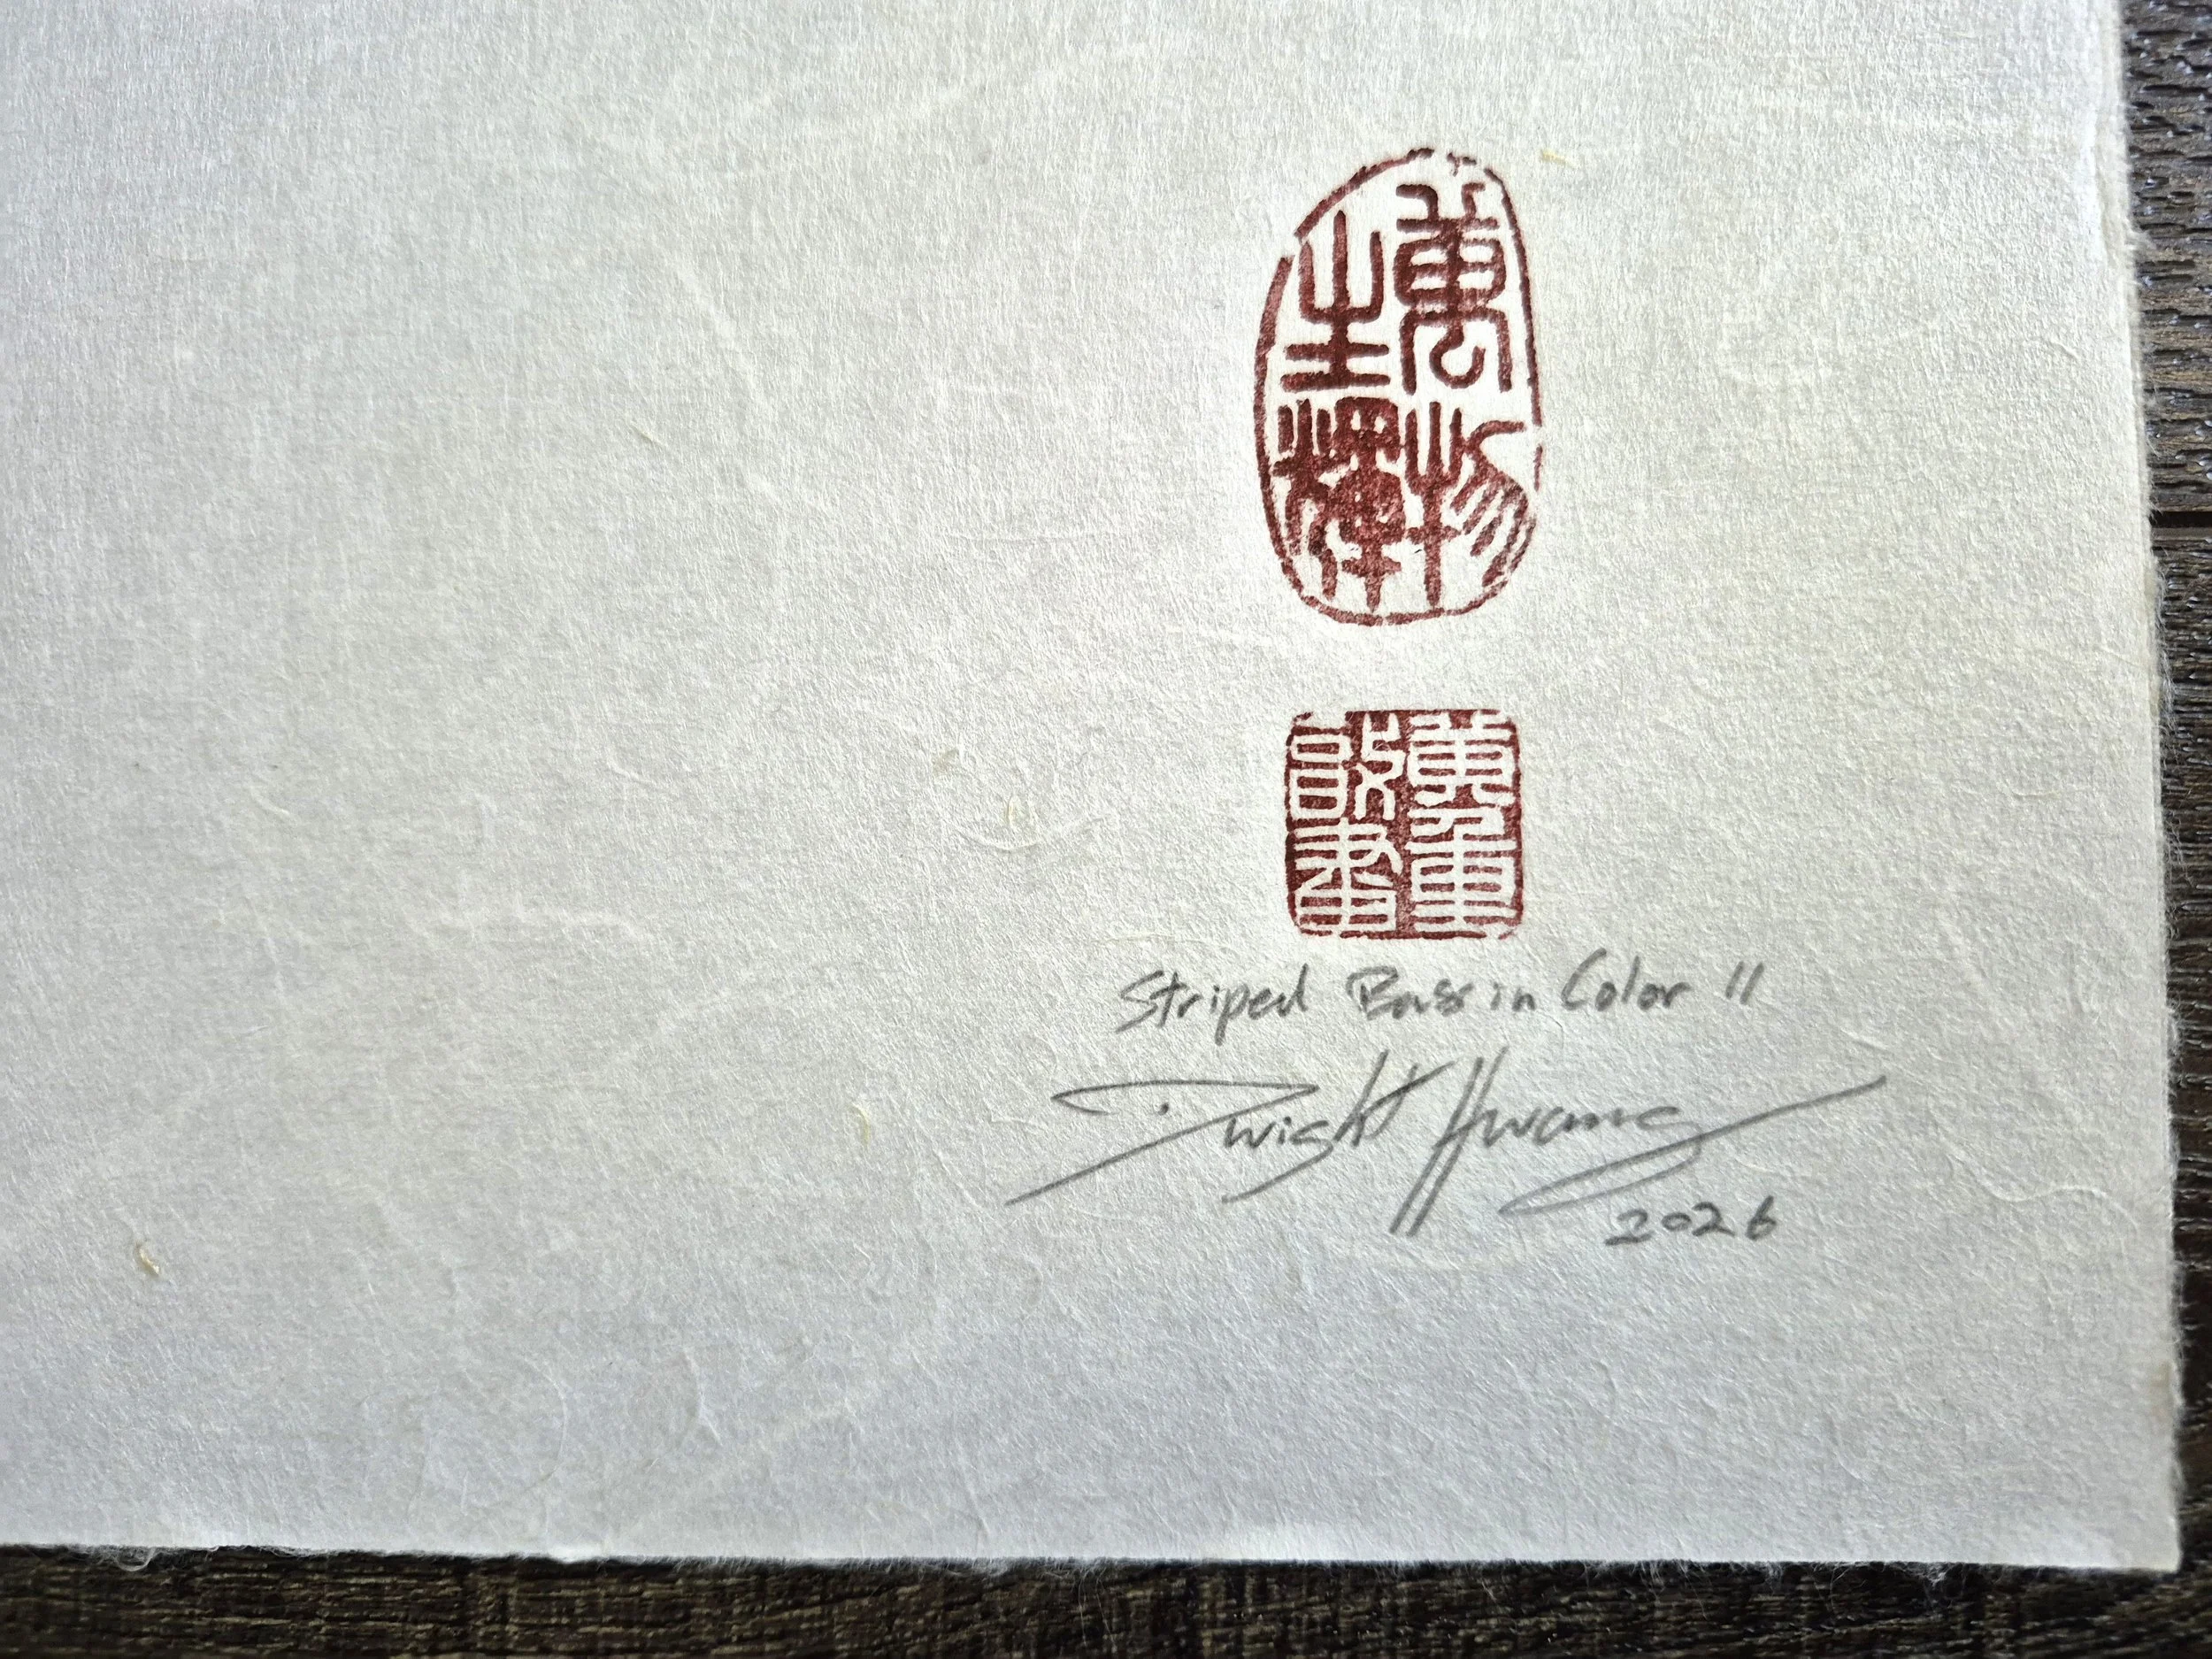 萬物
生輝
Striped Bass in Color II
Dwight Hwang
2026